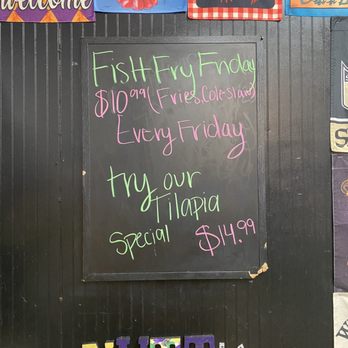 welcome
Fish Fry Friday
$10.99 (Fries, Coleslaw)
Every Friday
try our
Tilapia
Special $14.99